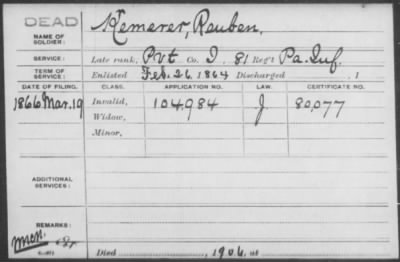 DEAD
NAME OF SOLDIER: Kemerer, Reuben.
SERVICE: Late rank, Pvt. Co. I, 81 Reg't Pa. Inf.
TERM OF SERVICE: Enlisted Feb. 26, 1864 Discharged , 1
DATE OF FILING. CLASS. APPLICATION NO. LAW. CERTIFICATE NO.
1866 Mar. 19 Invalid, 104,984 J. 80,077
Widow,
Minor,
ADDITIONAL SERVICES:
REMARKS:
Died , 1906, at